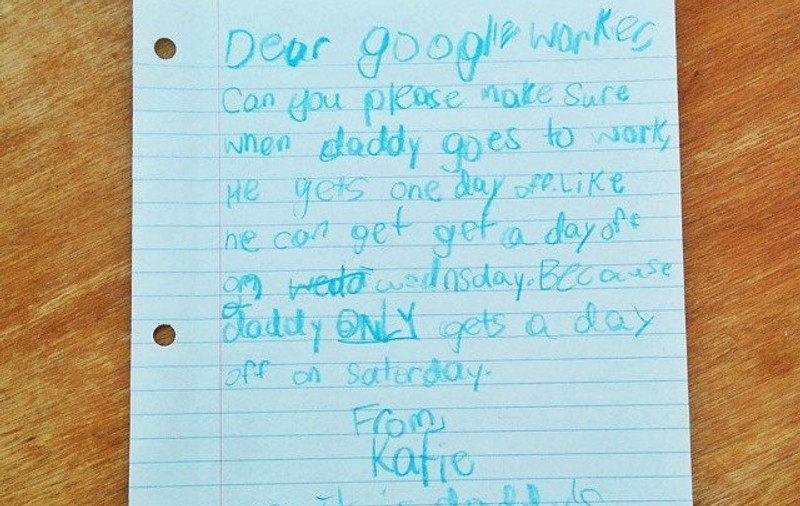 Dear google worker,
Can you please make sure
when daddy goes to work,
He gets one day off. Like
he can get get a day off
on wedd wednsday. Because
daddy ONLY gets a day
off on saterday.
From,
Katie